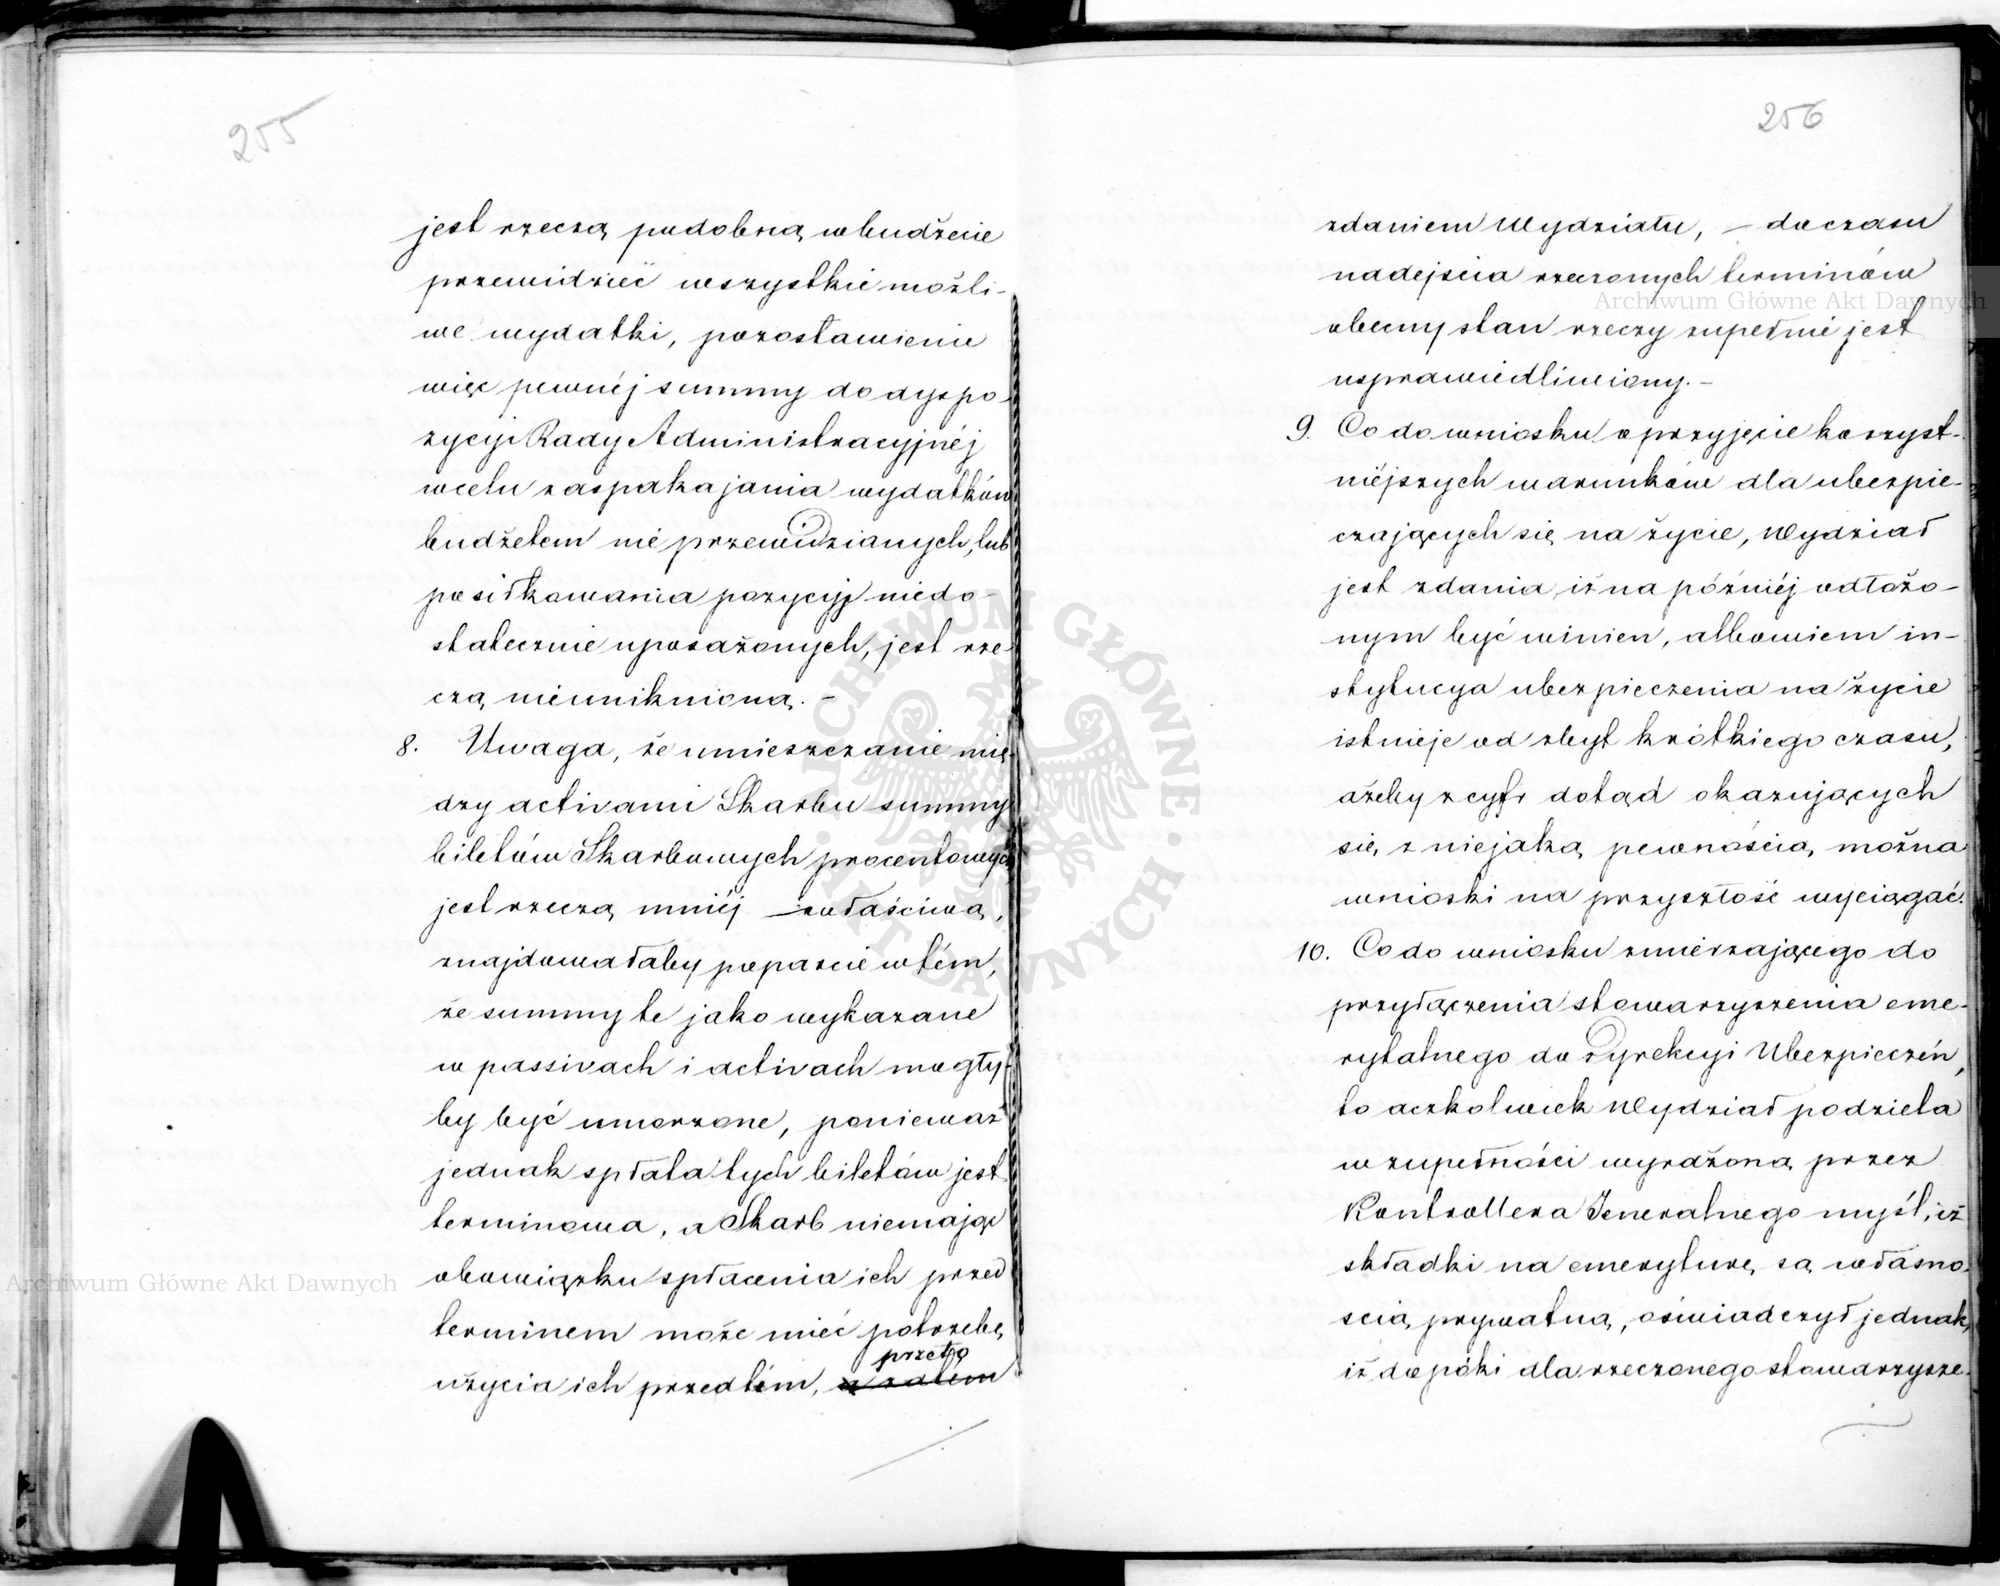 255
jest rzeczą podobną w budżecie
przewidzieć wszystkie możli-
we wydatki, pozostawienie
więc pewnéj summy do dyspo-
zycyi Rady Administracyjnéj
w celu zaspakajania wydatków
budżetem nie przewidzianych, lub
posiłkowania pozycyj niedo-
statecznie uposażonych, jest rze-
czą nieuniknioną. –
8. Uwaga, że umieszczanie mię-
dzy activami Skarbu summy
biletów Skarbowych procentowych
jest rzeczą mniéj – właściwą,
znajdowałaby poparcie w tém,
że summy te jako wykazane
w passivach i activach mogły-
by być umorzone, ponieważ
jednak spłata tych biletów jest
terminowa, a Skarb niemając
obowiązku spłacenia ich przed
terminem może mieć potrzebę
przeto
użycia ich przedtém, a zatem
256
zdaniem Wydziału, – do czasu
nadejścia rzeczonych terminów
obecny stan rzeczy zupełnie jest
usprawiedliwiony. –
9. Co do wniosku o przyjęcie korzyst-
niéjszych warunków dla ubezpie-
czających się na życie, Wydział
jest zdania, iż na późniéj odłożo-
nym być winien, albowiem in-
stytucya ubezpieczenia na życie
istnieje od zbyt krótkiego czasu,
ażeby z cyfr dotąd okazujących
się, z niejaką pewnością, można
wnioski na przyszłość wyciągać.
10. Co do wniosku zmierzającego do
przyłączenia stowarzyszenia eme-
rytalnego do Dyrekcyi Ubezpieczeń,
to aczkolwiek Wydział podziela
w zupełności wyrażoną przez
Kontrollera Jeneralnego myśl, iż
składki na emeryturę są własno-
scią prywatną, oświadczył jednak,
iż dopóki dla rzeczonego stowarzysze-
Archiwum Główne Akt Dawnych
Archiwum Główne Akt Dawnych
ARCHIWUM GŁÓWNE AKT DAWNYCH